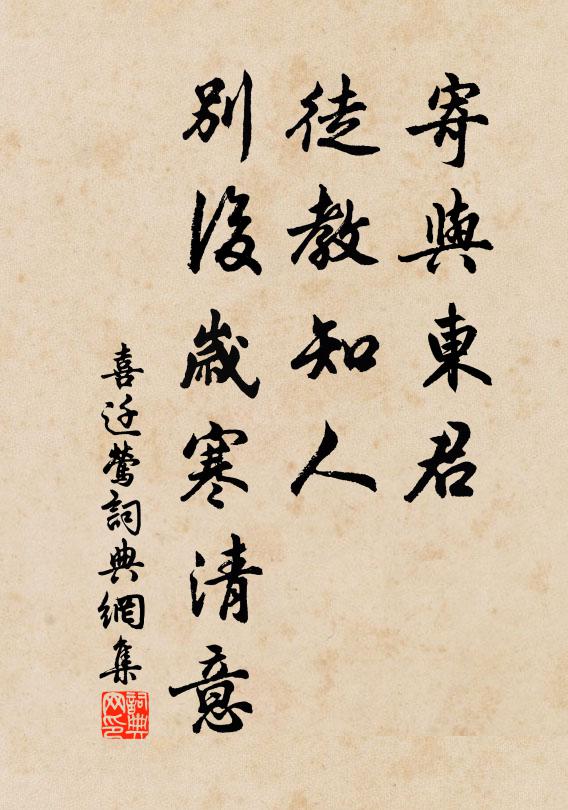 寄與東君
徒教知人
別後歲寒清意
喜迁鶯詞典網集
詞典网印